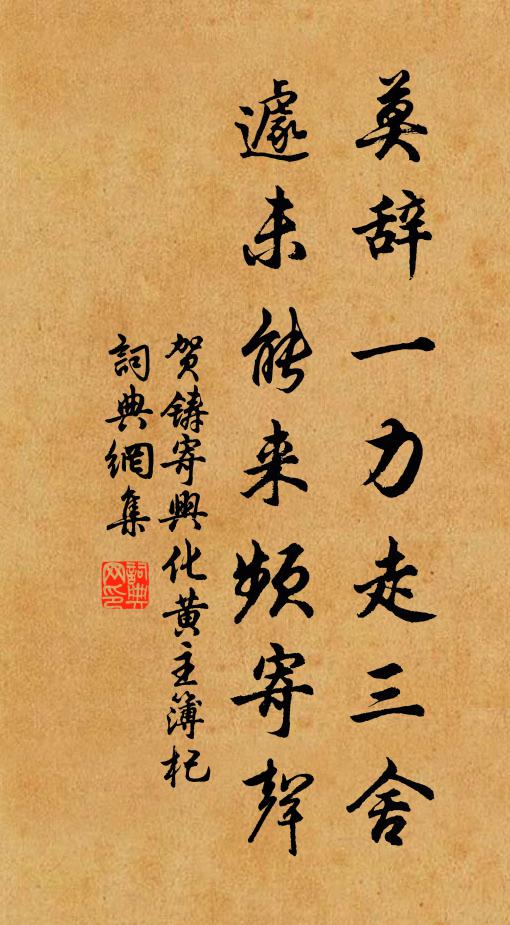 莫辞一力走三舍
遽未能来频寄声
贺铸寄興化黄主簿杞
詞典網集
詞典网印